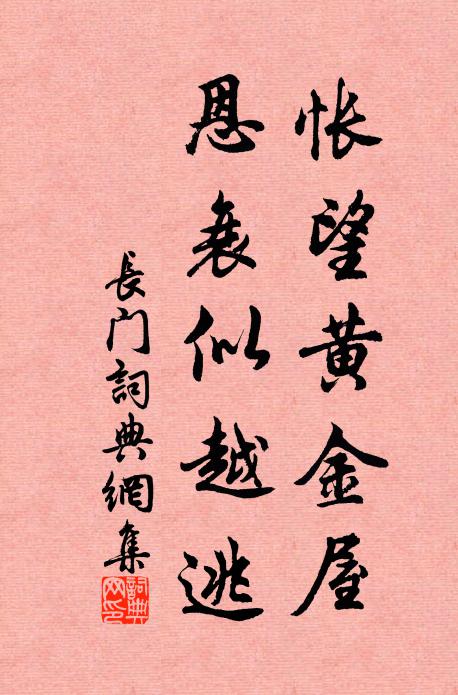 悵望黃金屋
恩衰似越逃
長門詞典網集
詞典网印